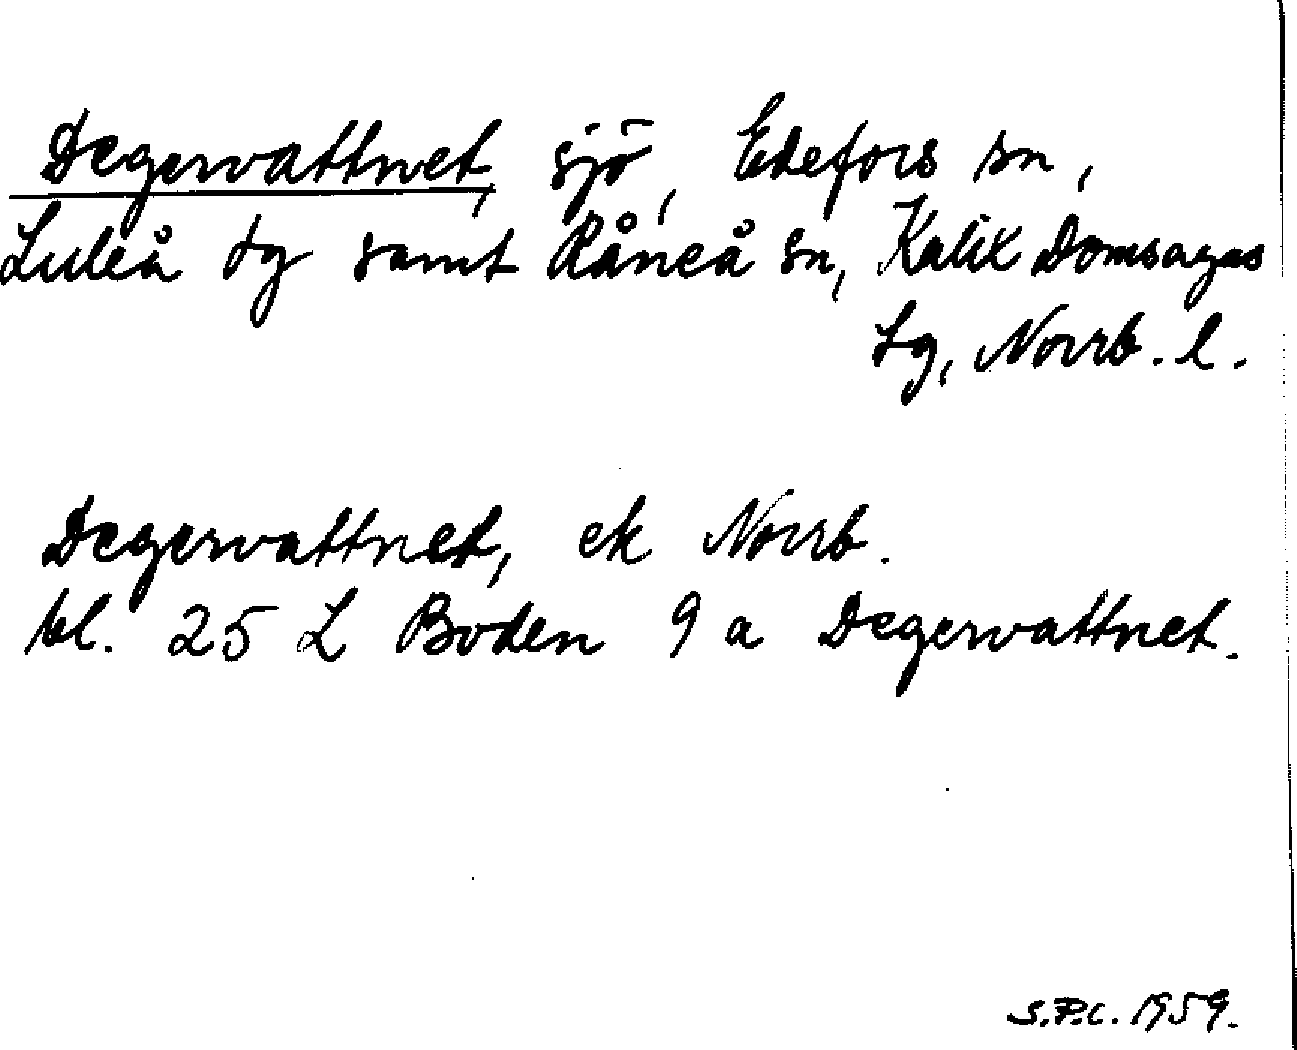 Degervattnet, sjö, Edefors sn,
Luleå tg samt Råneå sn, Kalix Domsagas
tg, Norrb. l.
Degervattnet, ek Norrb.
bl. 25 L Boden 9 a Degervattnet.
S.P.C. 1959.